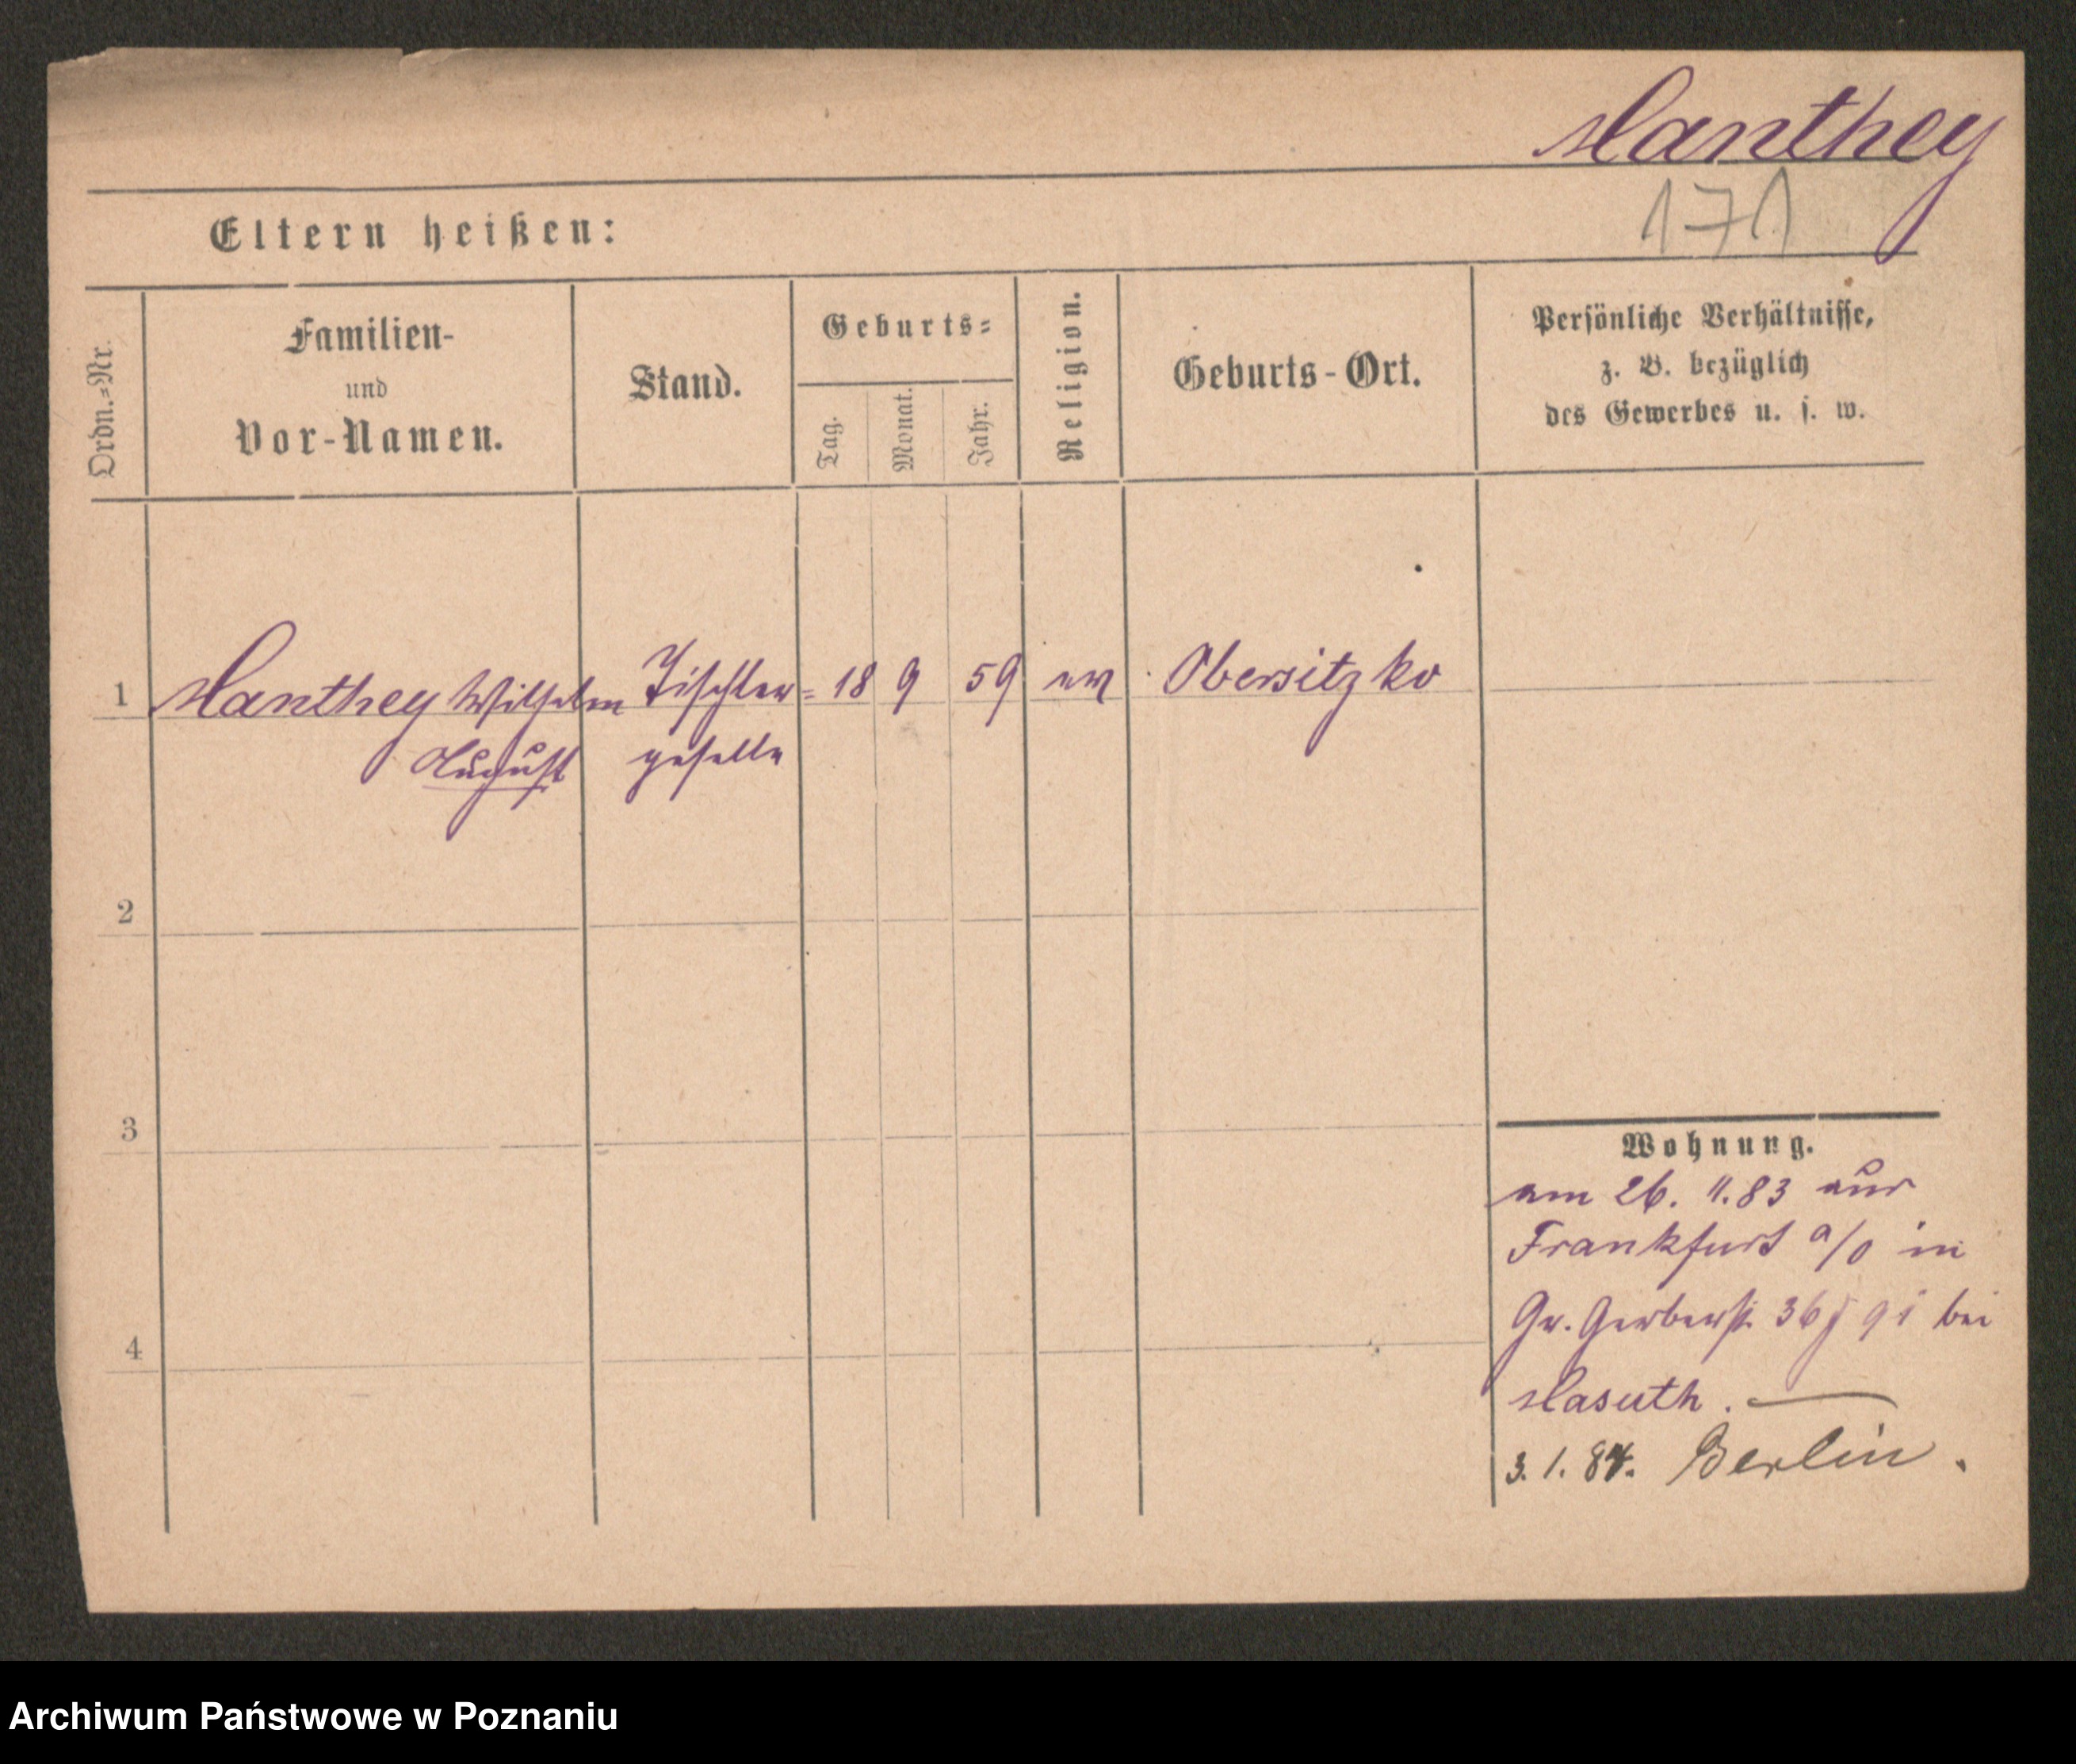 Manthey
171
Eltern heißen:
Ordn.=Nr.
Familien-
und
Vor-Namen.
Stand.
Geburts=
Tag.
Monat.
Jahr.
Religion.
Geburts-Ort.
Persönliche Verhältnisse,
z. B. bezüglich
des Gewerbes u. s. w.
1 Manthey Wilhelm Tischler= 18 9 59 ev Obersitzko
August geselle
2
3
4
Wohnung.
am 26. 11. 83 aus
Frankfurt a/O in
Gr. Gerberst. 36 bei
Masuth.
3. 1. 84. Berlin.
Archiwum Państwowe w Poznaniu